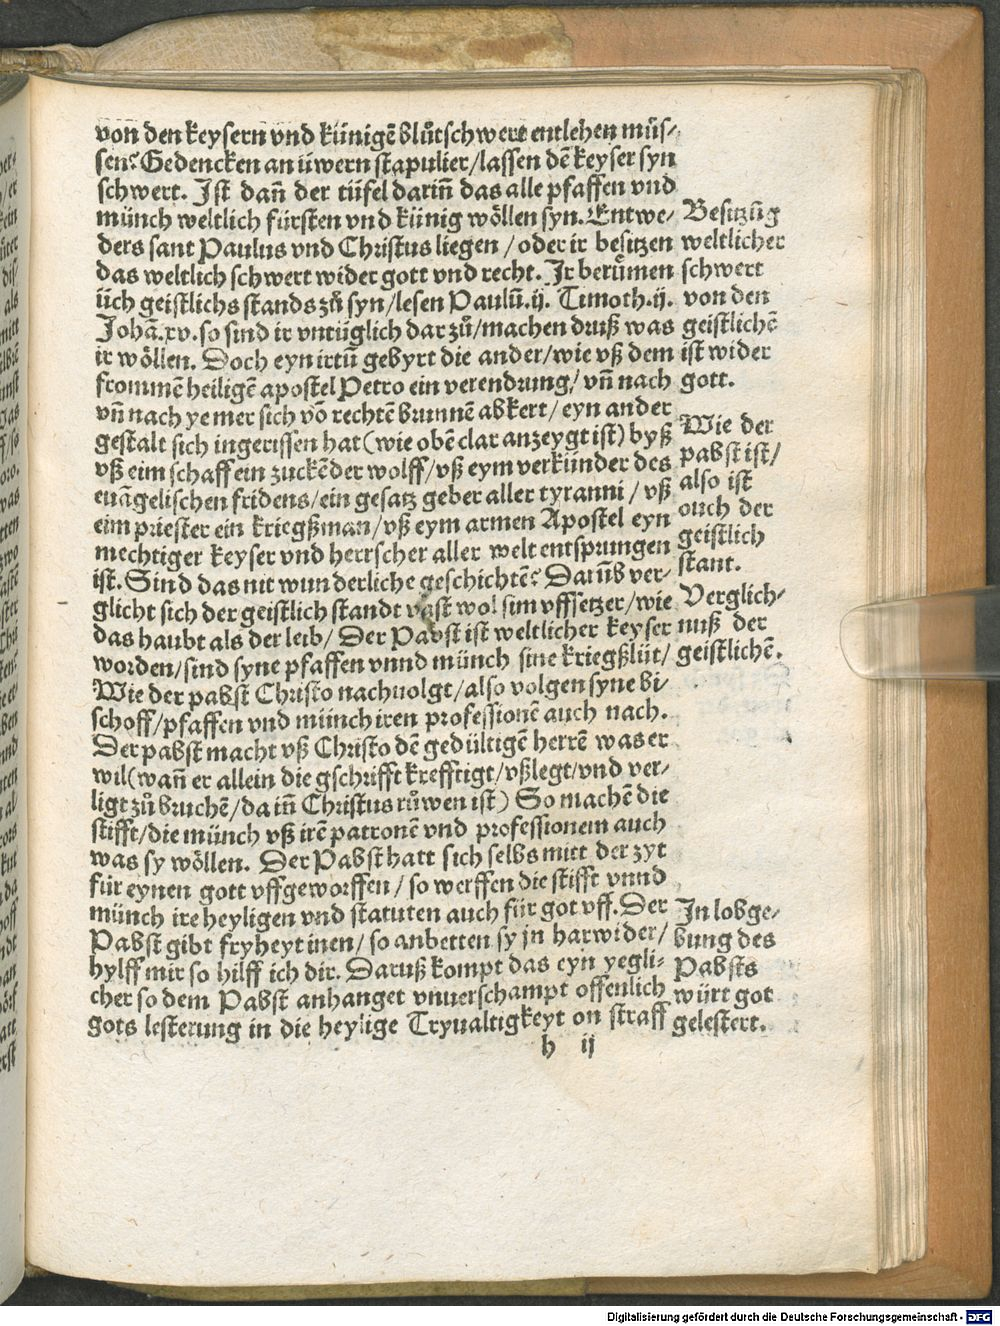 von den keysern vnd künigē blůtschwert entlehen müs/
sen? Gedencken an üwern stapulier/lassen dē keyser syn
schwert. Ist dañ der tüfel dariñ das alle pfaffen vnd
münch weltlich fürsten vnd künig wöllen syn. Entwe/
ders sant Paulus vnd Christus liegen/oder ir besitzen
das weltlich schwert wider gott vnd recht. Ir berůmen
üch geistlichs stands zů syn/lesen Paulū.ij. Timoth.ij.
Johā.xv.so sind ir vntüglich dar zů/machen druß was
ir wöllen. Doch eyn irtū gebyrt die ander/wie vß dem
frommē heiligē apostel Petro ein verendrung/vñ nach
vñ nach ye mer sich vō rechtē brunnē abkert/eyn ander
gestalt sich ingerissen hat(wie obē clar anzeygt ist)byß
vß eim schaff ein zuckēder wolff/vß eym verkünder des
euāgelischen fridens/ein gesatz geber aller tyranni/vß
eim priester ein kriegßman/vß eym armen Apostel eyn
mechtiger keyser vnd herrscher aller welt entsprungen
ist. Sind das nit wunderliche geschichtē? Darūb ver/
glicht sich der geistlich standt vast wol sim vffsetzer/wie
das haubt als der leib/Der Pabst ist weltlicher keyser
worden/sind syne pfaffen vnnd münch sine kriegßlüt/
Wie der pabst Christo nachuolgt/also volgen syne bi/
schoff/pfaffen vnd münch iren professionē auch nach.
Der pabst macht vß Christo dē gedültigē herrē was er
wil(wañ er allein die gschrifft krefftigt/vßlegt/vnd ver/
ligt zů bruchē/da iñ Christus růwen ist) So machē die
stifft/die münch vß irē patronē vnd professionem auch
was sy wöllen. Der Pabst hatt sich selbs mitt der zyt
für eynen gott vffgeworffen/so werffen die stifft vnnd
münch ire heyligen vnd statuten auch für got vff. Der
Pabst gibt fryheyt inen/so anbetten sy jn harwider/
hylff mir so hilff ich dir. Daruß kompt das eyn yegli/
cher so dem Pabst anhanget vnuerschampt offenlich
gots lesterung in die heylige Tryualtigkeyt on straff
h ij
Besitzūg
weltlicher
schwert
von den
geistlichē
ist wider
gott.
Wie der
pabst ist/
also ist
ouch der
geistlich
stant.
Verglich/
nuß der
geistlichē.
In lobge/
bung des
Pabsts
würt got
gelestert.
Digitalisierung gefördert durch die Deutsche Forschungsgemeinschaft - DFG